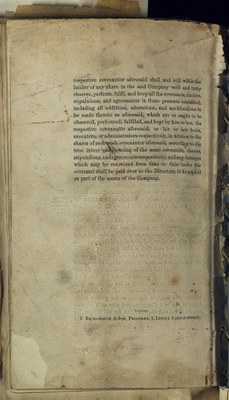 respective covenantor aforesaid shall and will while the
holder of any share in the said Company well and truly
observe, perform, fulfil, and keep all the covenants, clauses,
stipulations, and agreements in these presents contained,
including all additions, alterations, and modifications to
be made thereto as aforesaid, which are or ought to be
observed, performed, fulfilled, and kept by him or her, the
respective covenantor aforesaid, or his or her heirs,
executors, or administrators respectively, in relation to the
shares of such covenantor aforesaid, according to the
true intent and meaning of the same covenants, clauses,
stipulations, and agreements respectively, and any damages
which may be recovered from time to time under this
covenant shall be paid over to the Directors, to be applied
as part of the assets of the Company.